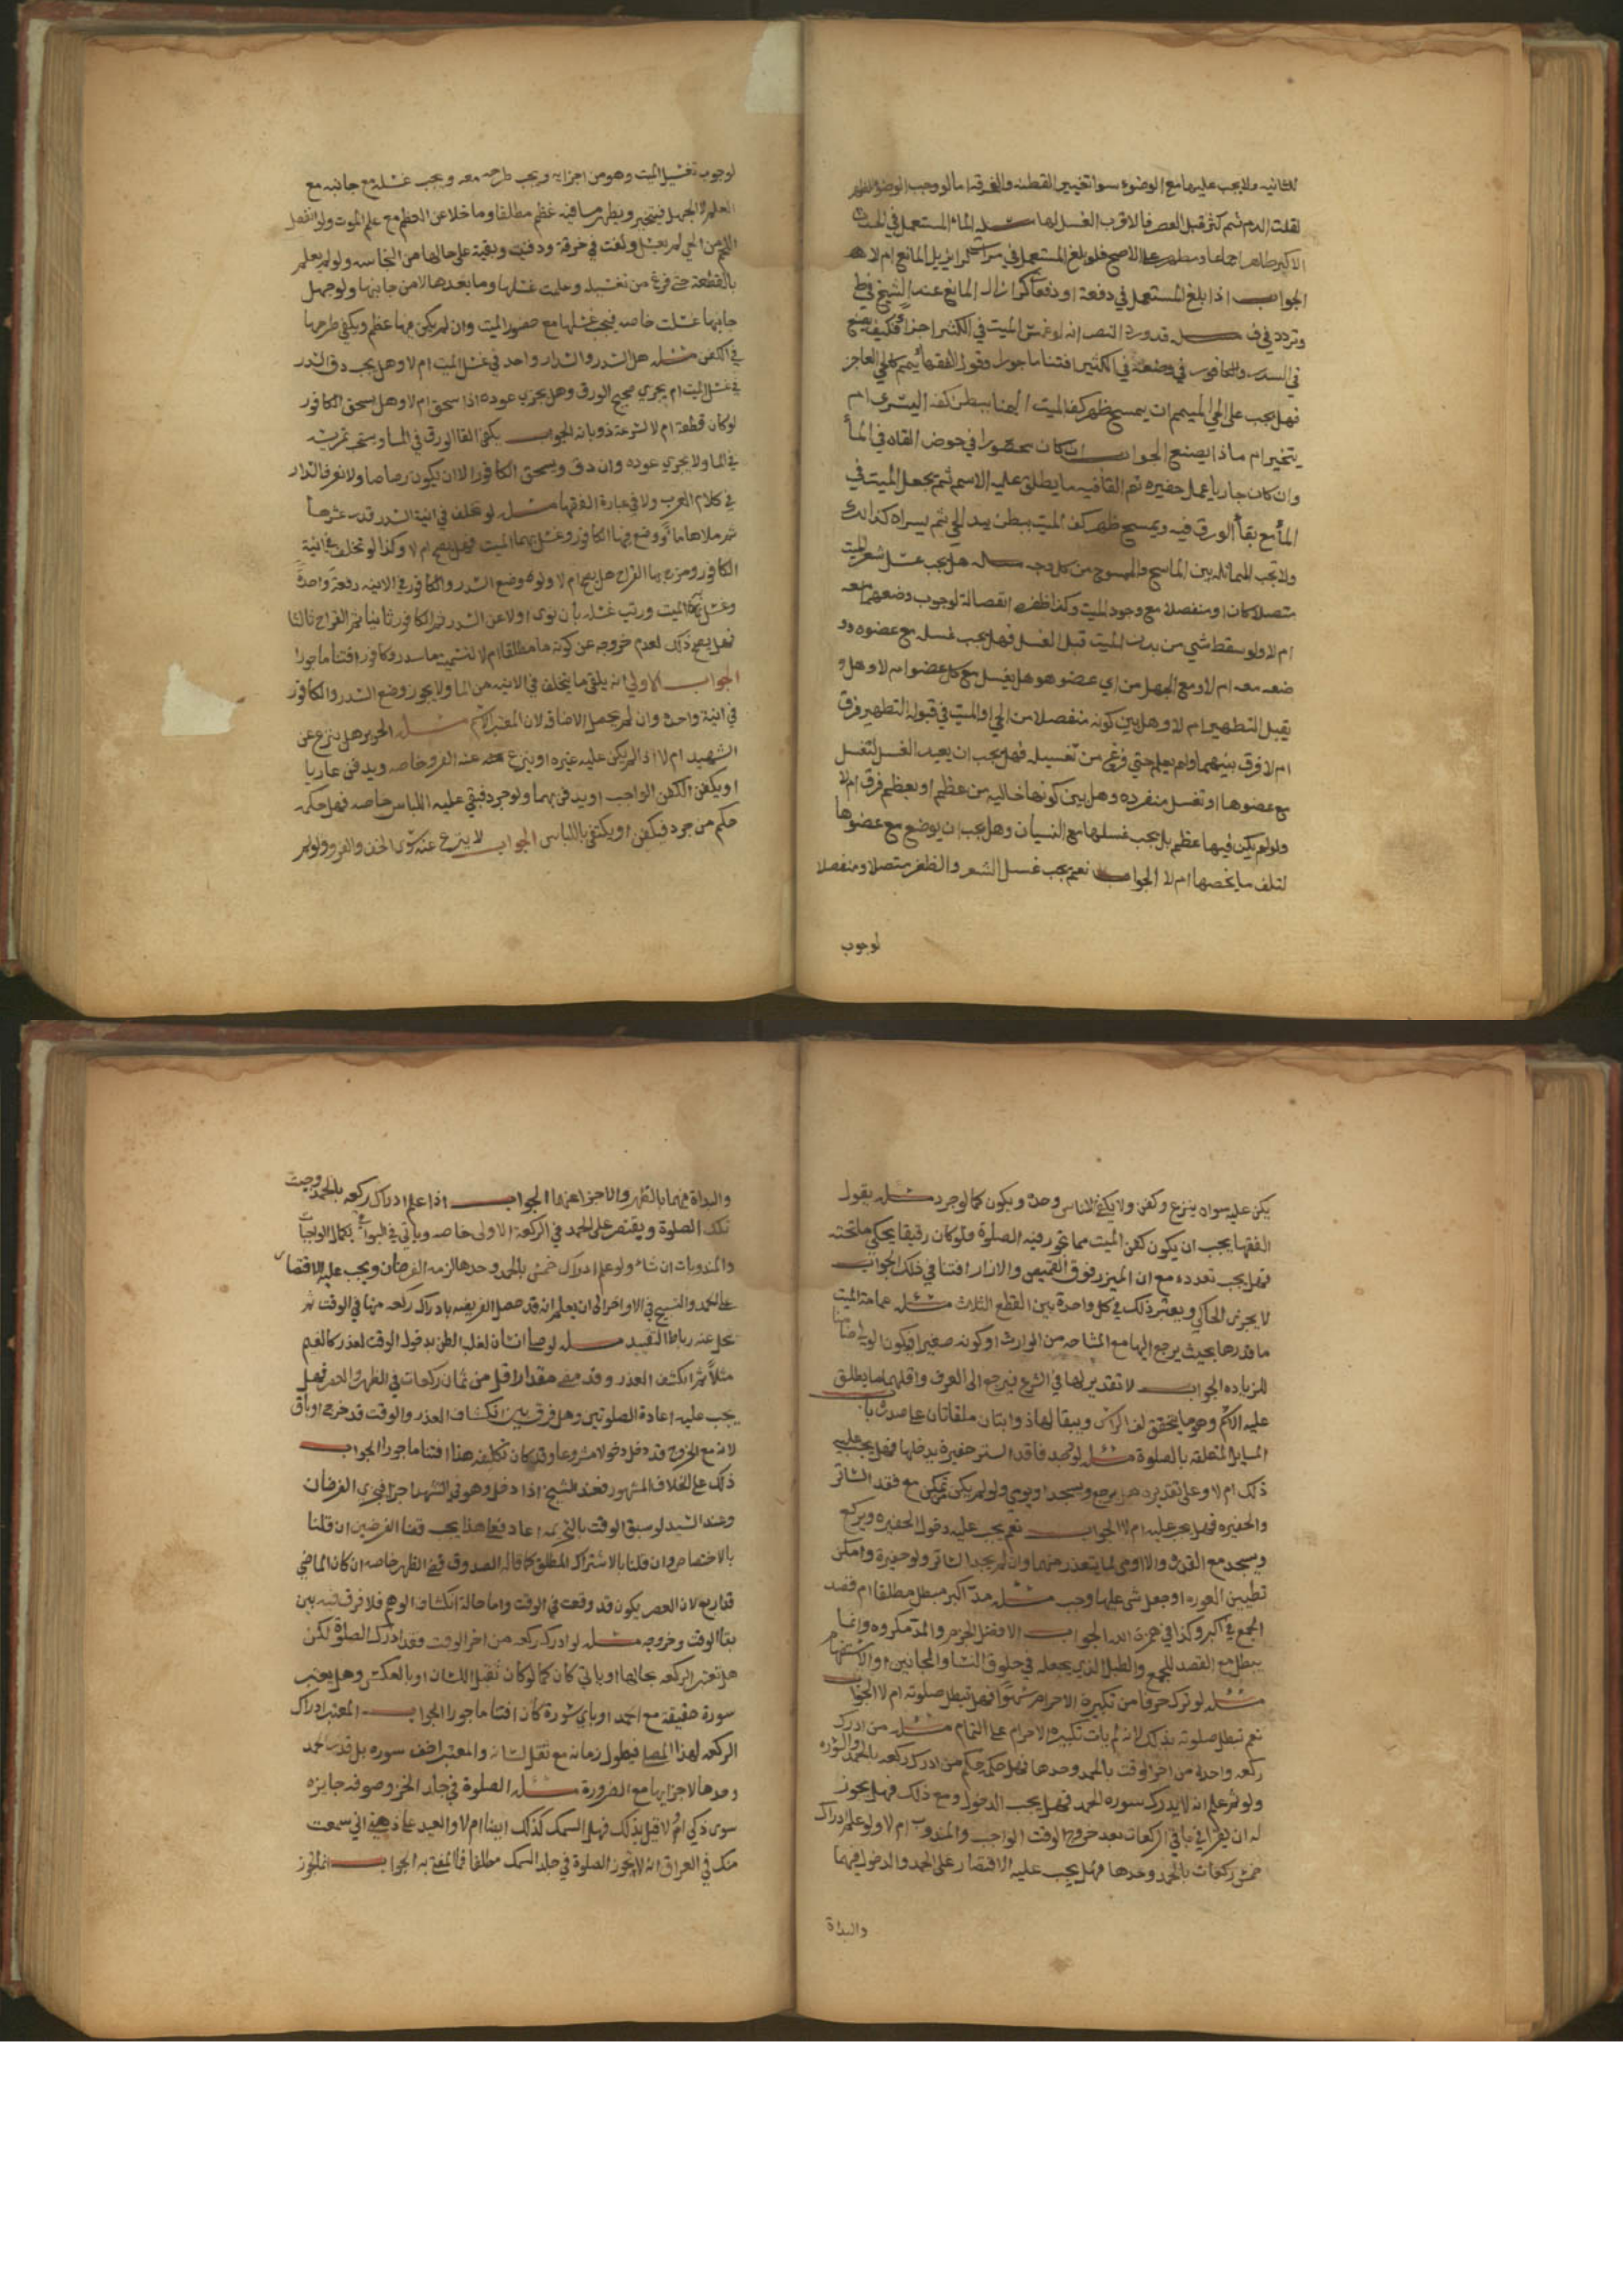 للثانيه ولا يجب عليها مع الوضوء سوا تغيير القطنه والخرقه اما لو وجب الوضوء للظهر
لقلت الدم ثم كثر قبل العصر فالاقرب الغسل لها مسئله الماء المستعمل في الحدث
الاكبر طاهر اجماعا ومطهر على الاصح فلو بلغ المستعمل في مرات كرا يزيل المانع ام لا
الجواب اذا بلغ المستعمل في دفعة او دفعات كرا زال المانع عند الشيخ في ط
وتردد في ف مسئله قد ورد النص انه لو غمس الميت في الكثير اجزأ فكيف يصنع
في السدر والكافور في وضعه في الكثير افتنا ماجورا وقول الفقهاء ييمم كالحي العاجز
فهل يجب على الحي الميمم ان يمسح ظهر كف الميت اليمنا ببطن كفه اليسرى ام
يتخير ام ماذا يصنع الجواب ان كان محصورا في حوض القاه في الماء
وان كان جاريا عمل حفيره ثم القا فيه ما يطلق عليه الاسم ثم يجعل الميت في
الماء مع بقاء الورق فيه ويمسح ظهر كف الميت ببطن يد الحي ثم يسراه كذالك
ولا تجب المماثله بين الماسح والممسوح من كل وجه مسئله هل يجب غسل شعر الميت
متصلا كان او منفصلا مع وجود الميت وكذا ظفره انفصاله لوجوب وضعهم معه
ام لا ولو سقط شي من بدن الميت قبل الغسل فهل يجب غسله مع عضوه وو
ضعه معه ام لا ومع الجهل من اي عضو هو هل يغسل مع كل عضو ام لا وهل و
يقبل التطهير ام لا وهل بين كونه منفصلا من الحي او الميت في قبوله التطهير فرق
ام لا فرق بينهما ولو لم يعلم حتي فرغ من تغسيله فهل يجب ان يعيد الغسل لتغسل
مع عضوها او تغسل منفرده وهل بين كونها خاليه من عظم او بعظم فرق ام لا
ولو لم يكن فيها عظم بل يجب غسلها مع النسيان وهل يجب ان يوضع مع عضوها
لتلف ما يخصها ام لا الجواب نعم يجب غسل الشعر والظفر متصلا ومنفصلا
لوجوب
لوجوب تغسيل الميت وهو من اجزايه ويجب طرحه معه ويجب غسله مع جانبه مع
العلم لا الجهل فيتخير ويطهر ما فيه عظم مطلقا وما خلا عن العظم مع علم الموت ولو انفصل
اللحم من الحي لم يغسل ولفت في خرقة ودفنت وبقية على حالها من النجاسه ولو لم يعلم
بالقطعة حتى فرغ من تغسيله وعلمت غسلها وما بعدها لا من جانبها ولو جهل
جانبها غسلت خاصه فيجب غسلها مع حضور الميت وان لم يكن فيها عظم ويكفي طرحها
في الكفن مسئله هل السدر والسدار واحد في غسل الميت ام لا وهل يجب دق السدر
في غسل الميت ام يجزي صحيح الورق وهل يجزي عوده اذا سحق ام لا وهل يسحق الكافور
لو كان قطعة ام لا لسرعة ذوبانه الجواب يكفي القا الورق في الما ويستحب تمريسه
في الما ولا يجزي عوده وان دق ويسحق الكافور الا ان يكون رصاصا ولا نعرف السدار
في كلام العرب ولا في عبارة الفقها مسئله لو تخلف في انية السدر قدر عشرها
ثم ملاها ماء ووضع فيها الكافور وغسل بها الميت فهل يصح ام لا وكذا لو تخلف في انية
الكافور ومزج بها القراح هل يصح ام لا ولو وضع السدر والكافور في الانيه دفعة واحدة
وغسل بها الميت ورتب غسله بأن نوى اولا عن السدر ثم الكافور ثانيا ثم القراح ثالثا
فهل يصح ذلك لعدم خروجه عن كونه ما مطلقا ام لا لتسميتها سدر وكافور افتنا ماجورا
الجواب الاولي انه يلقي ما يتخلف في الانيه من الما ولا يجوز وضع السدر والكافور
في انية واحدة وان لم يحصل الاضافه لان المعتبر الاسم مسئله الحرير هل ينزع عن
الشهيد ام لا اذا لم يكن عليه غيره او ينزع عنه الفرو خاصه ويدفن عاريا
او يكفن الكفن الواجب او يدفن بهما ولو جرد فبقي عليه اللباس خاصه فهل حكمه
حكم من جرد فيكفن او يكتفي باللباس الجواب لا ينزع عنه سوى الخف والفرو ولو لم
يكن عليه سواه ينزع وكفن ولا يكفي اللباس وحده ويكون كما لو جرد مسئله يقول
الفقها يجب ان يكون كفن الميت مما تجوز فيه الصلوة فلو كان رقيقا يحكي ما تحته
فهل يجب تعدده مع ان الميزر فوق القميص والازار افتنا في ذلك الجواب
لا يجزى الحاكي ويعتبر ذلك في كل واحدة بين القطع الثلاث مسئله عمامة الميت
ما قدرها بحيث يرجع اليها مع المشاحه من الوارث او كونه صغيرا فيكون الولي ضامنا
للزياده الجواب لا تقدير لها في الشرع فيرجع الى العرف واقلها ما يطلق
عليه الاسم وهو ما يتحقق لف الراس ويبقا لها ذوابتان ملقاتان على صدره با
المسايل المتعلقه بالصلوة مسئله لو وجد فاقد الستر حفيرة يدخلها فهل يجب عليه
ذلك ام لا وعلى تقديره هل يركع ويسجد او يومي ولو لم يكن تمكن مع فقد الساتر
والحفيره فهل يجب عليه ام لا الجواب نعم يجب عليه دخول الحفيره ويركع
ويسجد مع القدره والا اومى لما يتعذر منهما وان لم يجد الساتر ولو حفيرة وامكن
تطيين العوره او جعل شي عليها وجب مسئله مد اكبر مبطل مطلقا ام قصد
الجمع في اكبر وكذا في همزة الله الجواب الافضل الجزم والمد مكروه وانما
يبطل مع القصد للجمع والطبل الذي يجعله في حلوق النسا والمجانين او الاستفهام
مسئله لو ترك حرفا من تكبيرة الاحرام سهوا فهل تبطل صلوته ام لا الجواب
نعم تبطل صلوته بذلك لانه لم يات تكبيره الاحرام على التمام مسئله من ادرك
ركعه واحدة من اخر الوقت بالحمد وحدها فهل حكمه حكم من ادرك ركعه بالحمد والسوره
ولو لم علم انه لا يدرك سوره الحمد فهل يجب الدخول ومع ذلك فهل يجوز
له ان يقرا في باقي الركعات بعد خروج الوقت الواجب والمندوب ام لا ولو علم ادراك
خمس ركعات بالحمد وحدها فهل يجب عليه الاقتصار على الحمد والدخول فيهما
والبداة
والبداة فيهما بالظهر والاجزا عنهما الجواب اذا علم ادراك ركعه بالحمد وجبت
تلك الصلوة ويقتصر على الحمد في الركعة الاولى خاصه وياتي في البواقي بكمال الواجبات
والمندوبات ان شاء ولو علم ادراك خمس بالحمد وحدها لزمه الفرضان ويجب عليه الاقتصار
على الحمد والتسبيح في الاواخر الى ان يعلم انه قد حصل الفريضه بادراك ركعه منها في الوقت ثم
ينحل عنه رباط التقييد مسئله لو صلى انسان لغلبه الظن بدخول الوقت لعذر كالغيم
مثلا ثم انكشف العذر وقد مضى مقدار اقل من ثمان ركعات في الظهر والعصر فهل
يجب عليه اعادة الصلوتين وهل فرق بين انكشاف العذر والوقت قد خرج او باق
لانه مع الخروج قد دخل دخولا مشروعا وقد كان تكليفه هذا افتنا ماجورا الجواب
ذلك على الخلاف المشهور فعند الشيخ اذا دخل وهو في التشهد اجزا فيجزي الفرضان
وعند السيد لو سبق الوقت بالتحريمه اعاد فعلى هذا يجب قضا الفرضين ان قلنا
بالاختصاص وان قلنا بالاشتراك المطلق كما قاله الصدوق قضى الظهر خاصه ان كان الماضي
قدر اربع لان العصر يكون قد وقعت في الوقت واما حالة انكشاف الوهم فلا فرق فيه بين
بقا الوقت وخروجه مسئله لو ادرك ركعه من اخر الوقت وقد ادرك الصلوة لكن
هل تعتبر الركعه بحالها او باتي كان كما لو كان ثقيل اللسان او بالعكس وهل يعتبر
سورة خفيفه مع الحمد او باي سورة كان افتنا ماجورا الجواب المعتبر ادراك
الركعه لهذا المصلي فيطول زمانه مع ثقل لسانه والمعتبر اخف سوره بل قدر الحمد
وحدها لاجزايها مع الضرورة مسئله الصلوة في جلد الخز وصوفه جايزه
سوى ذكي ام لا قيل بذلك فهل السمك كذلك ايضا ام لا والعبد على ذهني اني سمعت
منك في العراق انه لا تجوز الصلوة في جلد السمك مطلقا فما المفتى به الجواب انه لا تجوز